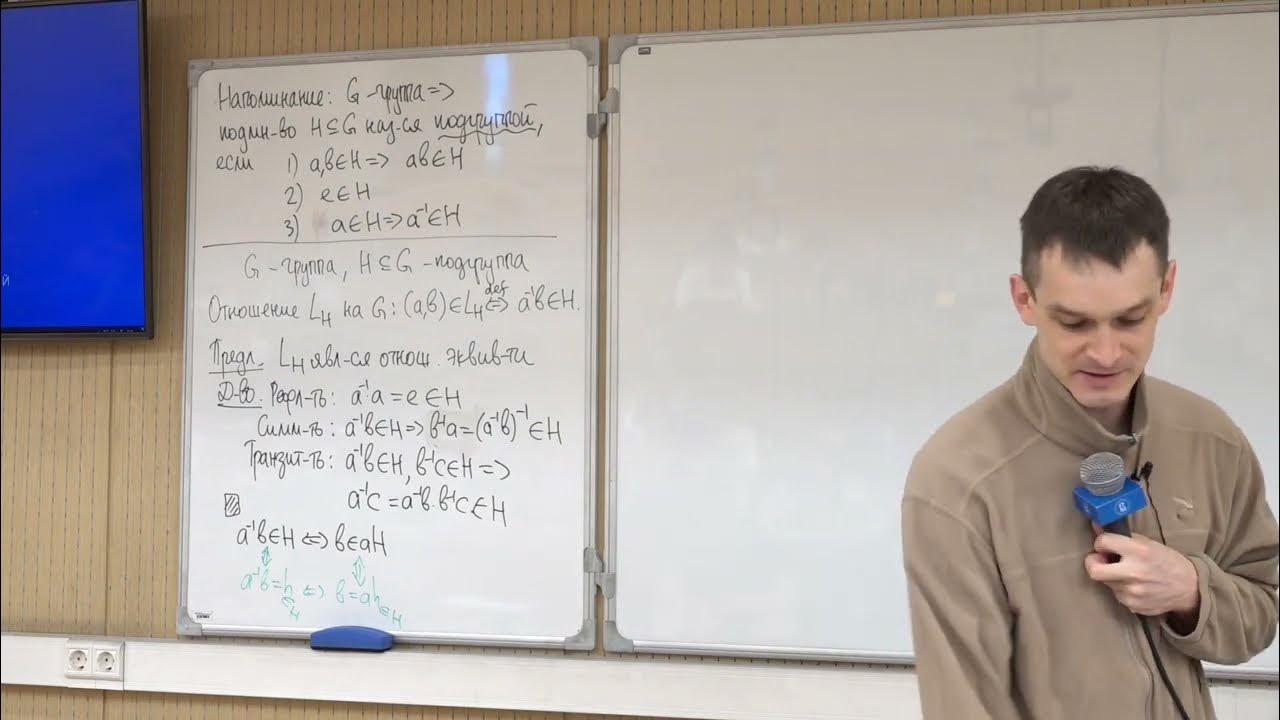 Напоминание: G – группа =>
подмн-во H⊆G наз-ся подгруппой,
если 1) a,b∈H => ab∈H
2) e∈H
3) a∈H => a⁻¹∈H
G – группа, H⊆G – подгруппа
Отношение L_H на G: (a,b)∈L_H ⇔ def a⁻¹b∈H.
Предл. L_H явл-ся отнош. эквив-ти
Д-во. Рефл-ть: a⁻¹a = e ∈ H
Симм-ть: a⁻¹b∈H => b⁻¹a = (a⁻¹b)⁻¹ ∈ H
Транзит-ть: a⁻¹b∈H, b⁻¹c∈H =>
a⁻¹c = a⁻¹b·b⁻¹c ∈ H
a⁻¹b∈H ⇔ b∈aH
a⁻¹b = h ∈H ⇔ b = ah ∈H
й